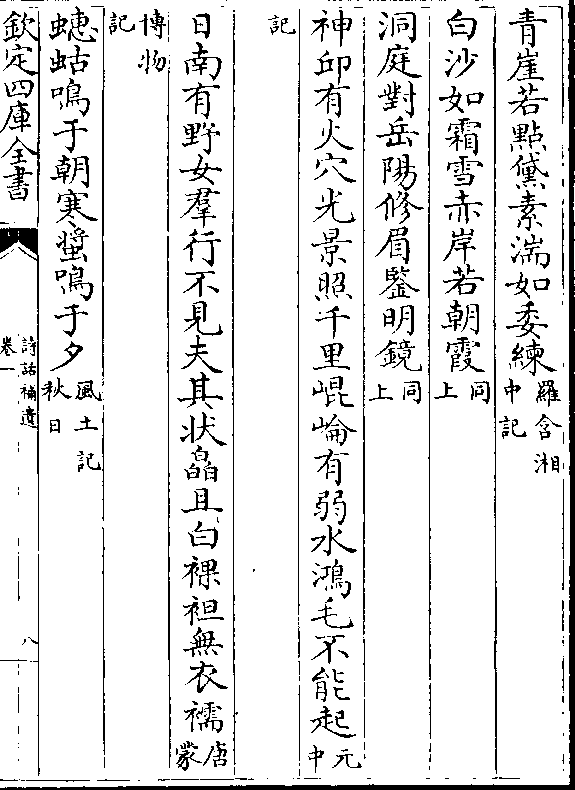 青崖若點黛素湍如委練羅含湘中記
白沙如霜雪赤岸若朝霞同上
洞庭對岳陽修眉鑒明鏡同上
神邱有火穴光景照千里崐崘有弱水鴻毛不能起元中
記
日南有野女羣行不見夫其状皛且白裸袒無衣襦唐蒙
博物記
蟪蛄鳴于朝寒螿鳴于夕風土記秋日
欽定四庫全書
詩話補遺
卷一
八